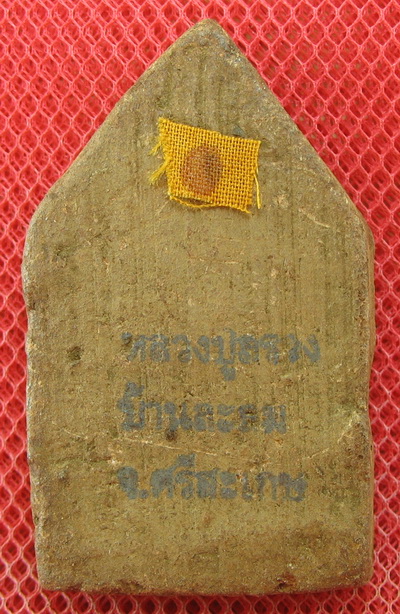 หลวงปู่สรวง
บ้านละลม
จ.ศรีสะเกษ